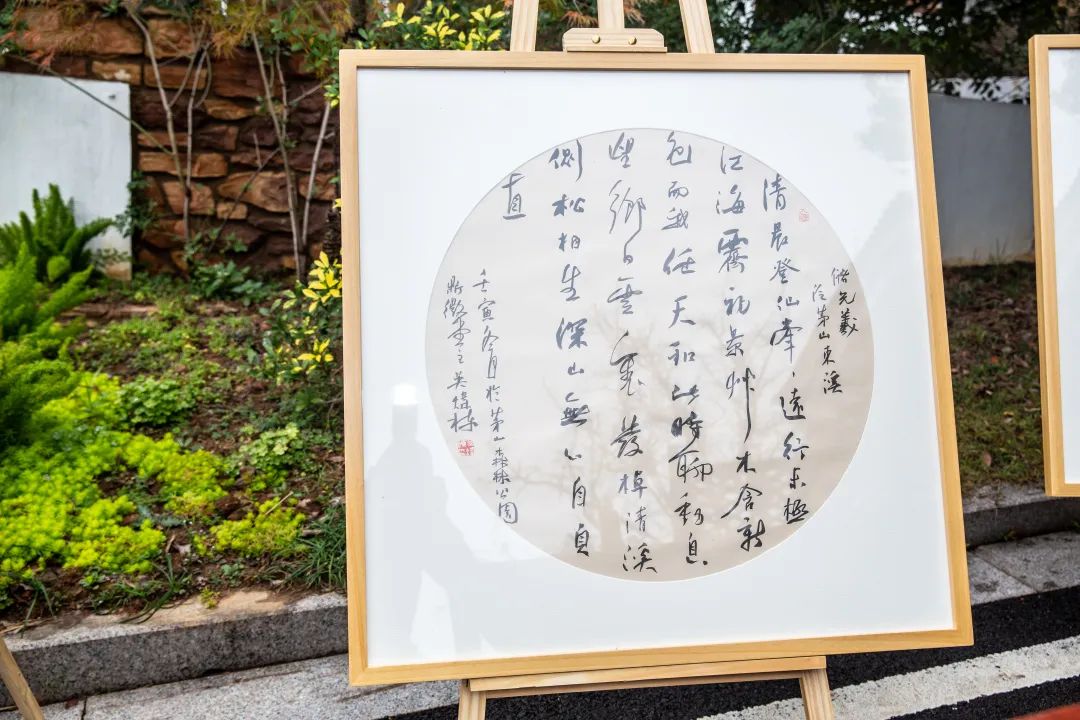 儲光羲
泛茅山東溪
清晨登仙峰、遠行未極
江海霽初景艸木含新
色而我任天和此時聊動息
望鄉白雲裏發棹清溪
側松柏生深山無心自貞
直
壬寅冬月於茅山森林公園
微堂主